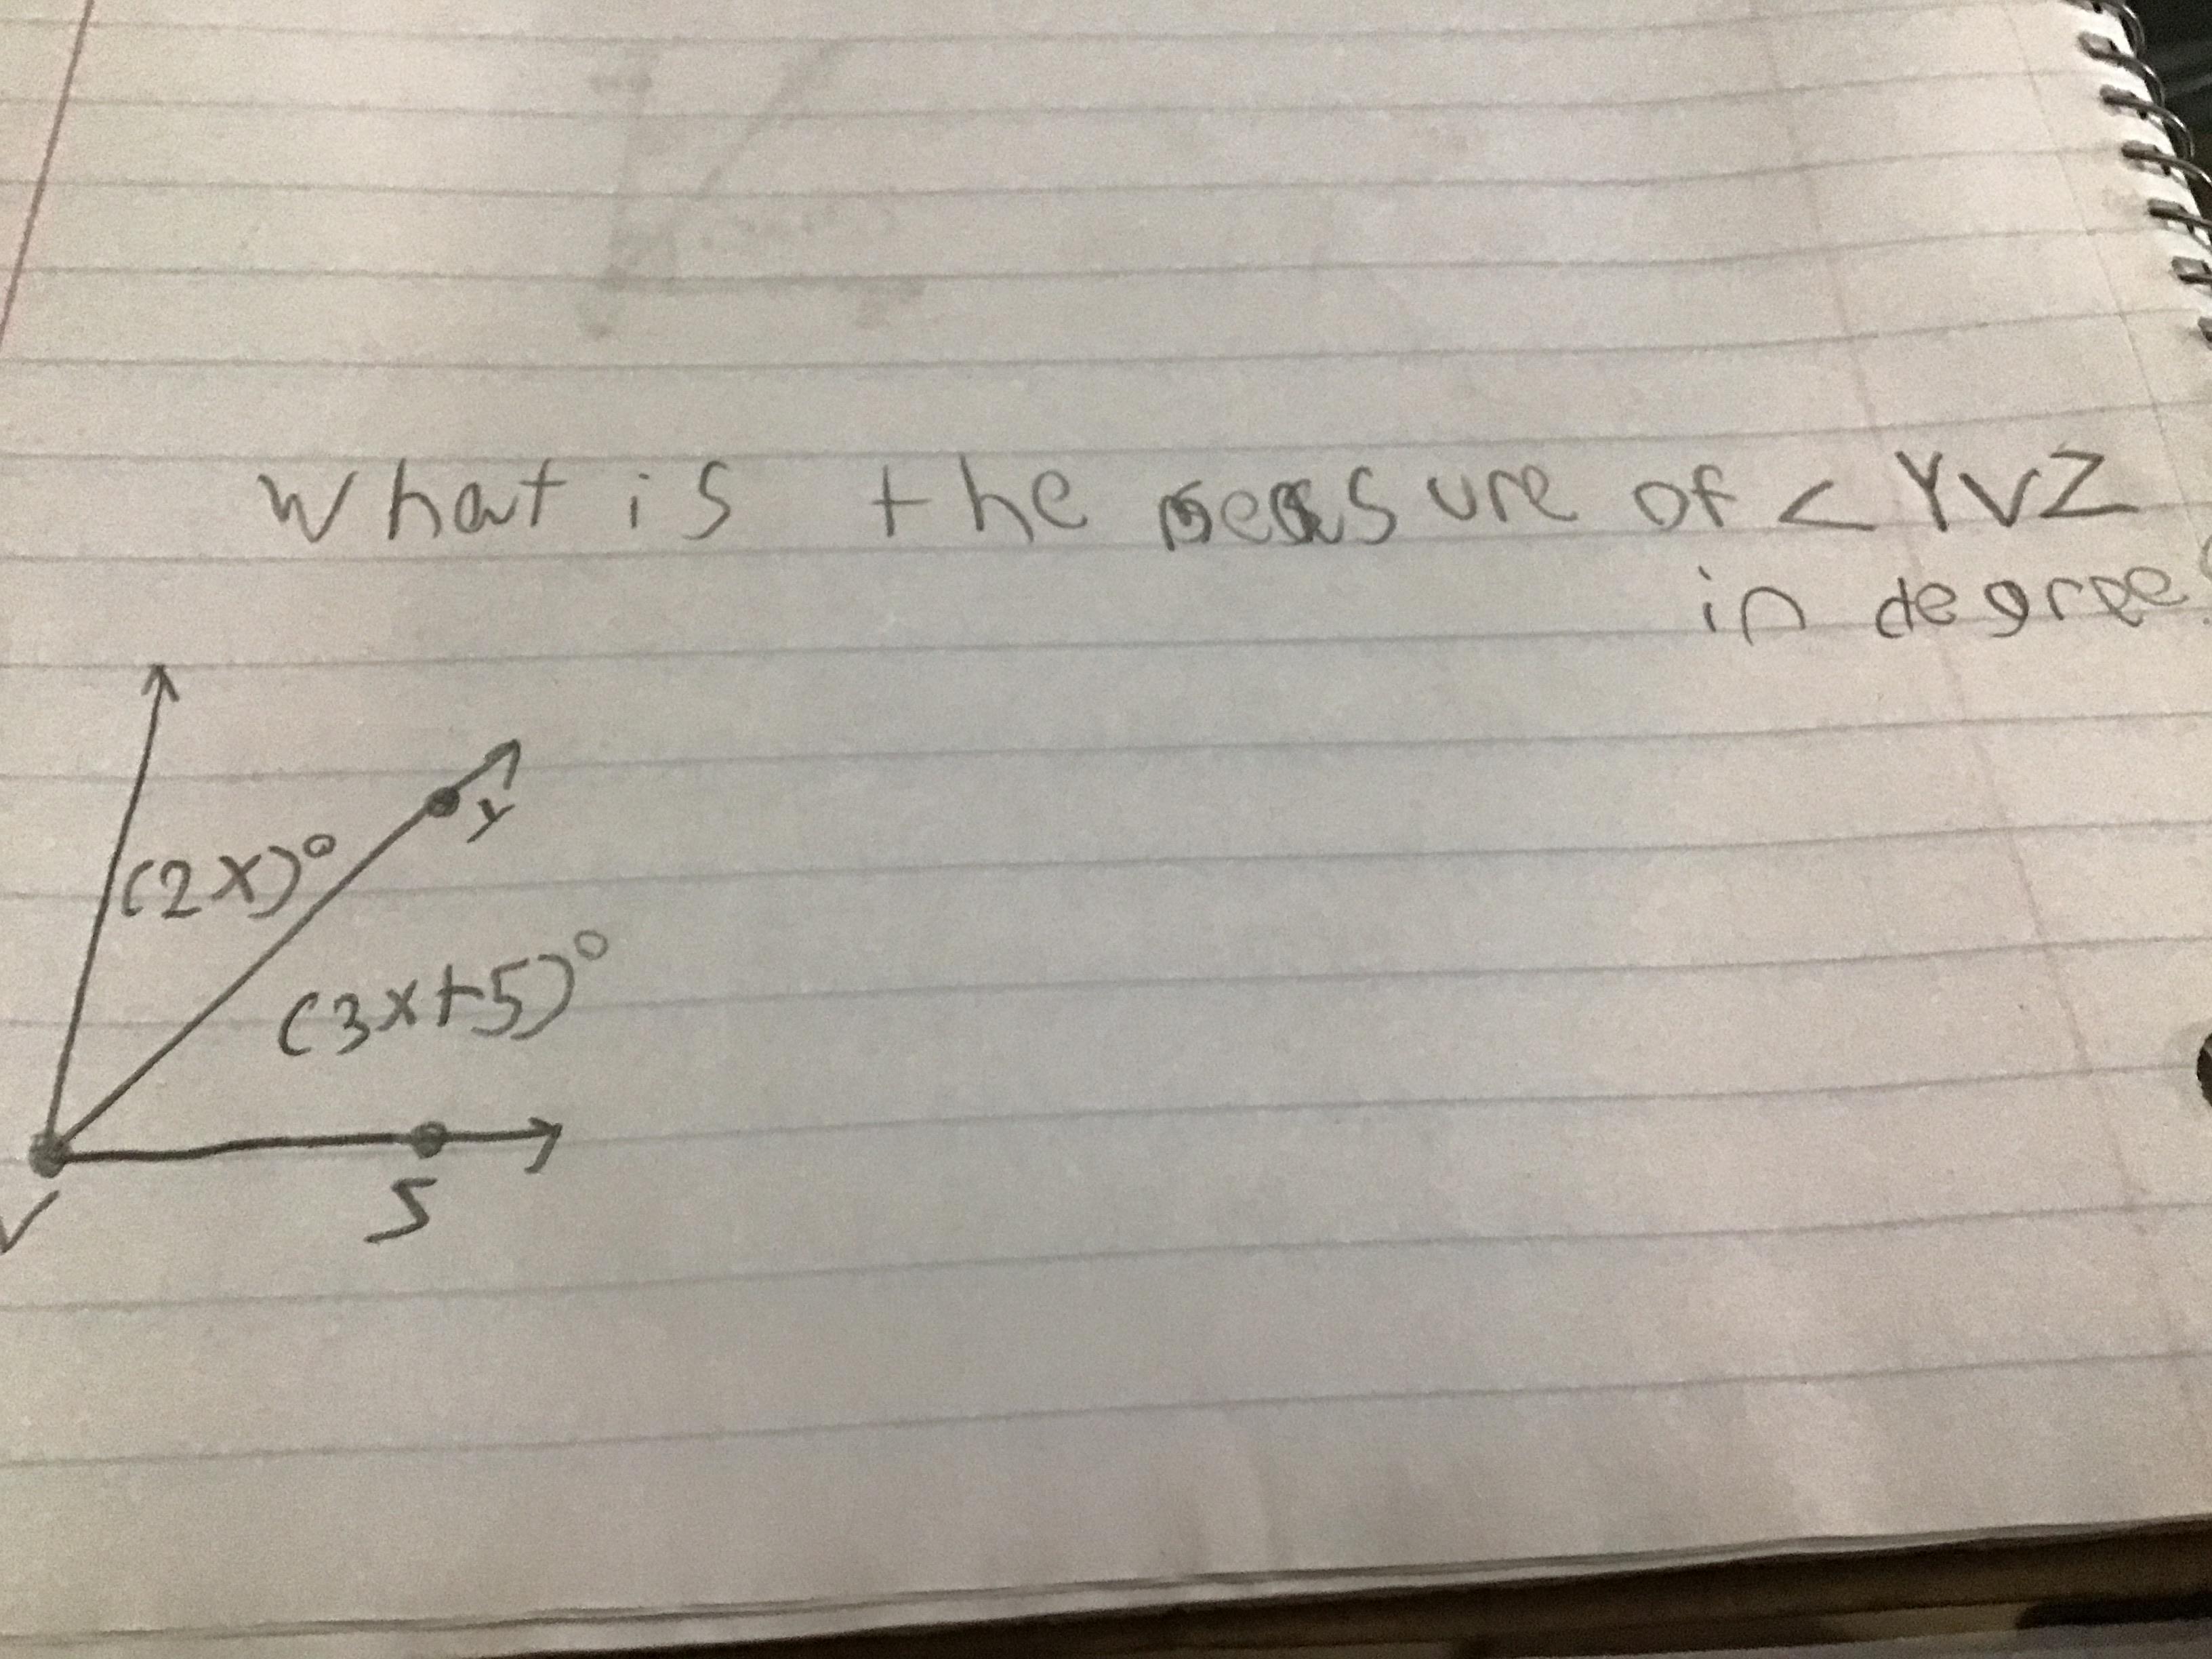 What is the measure of < YVZ
in degree?
Y
(2x)°
(3x+5)°
S
V